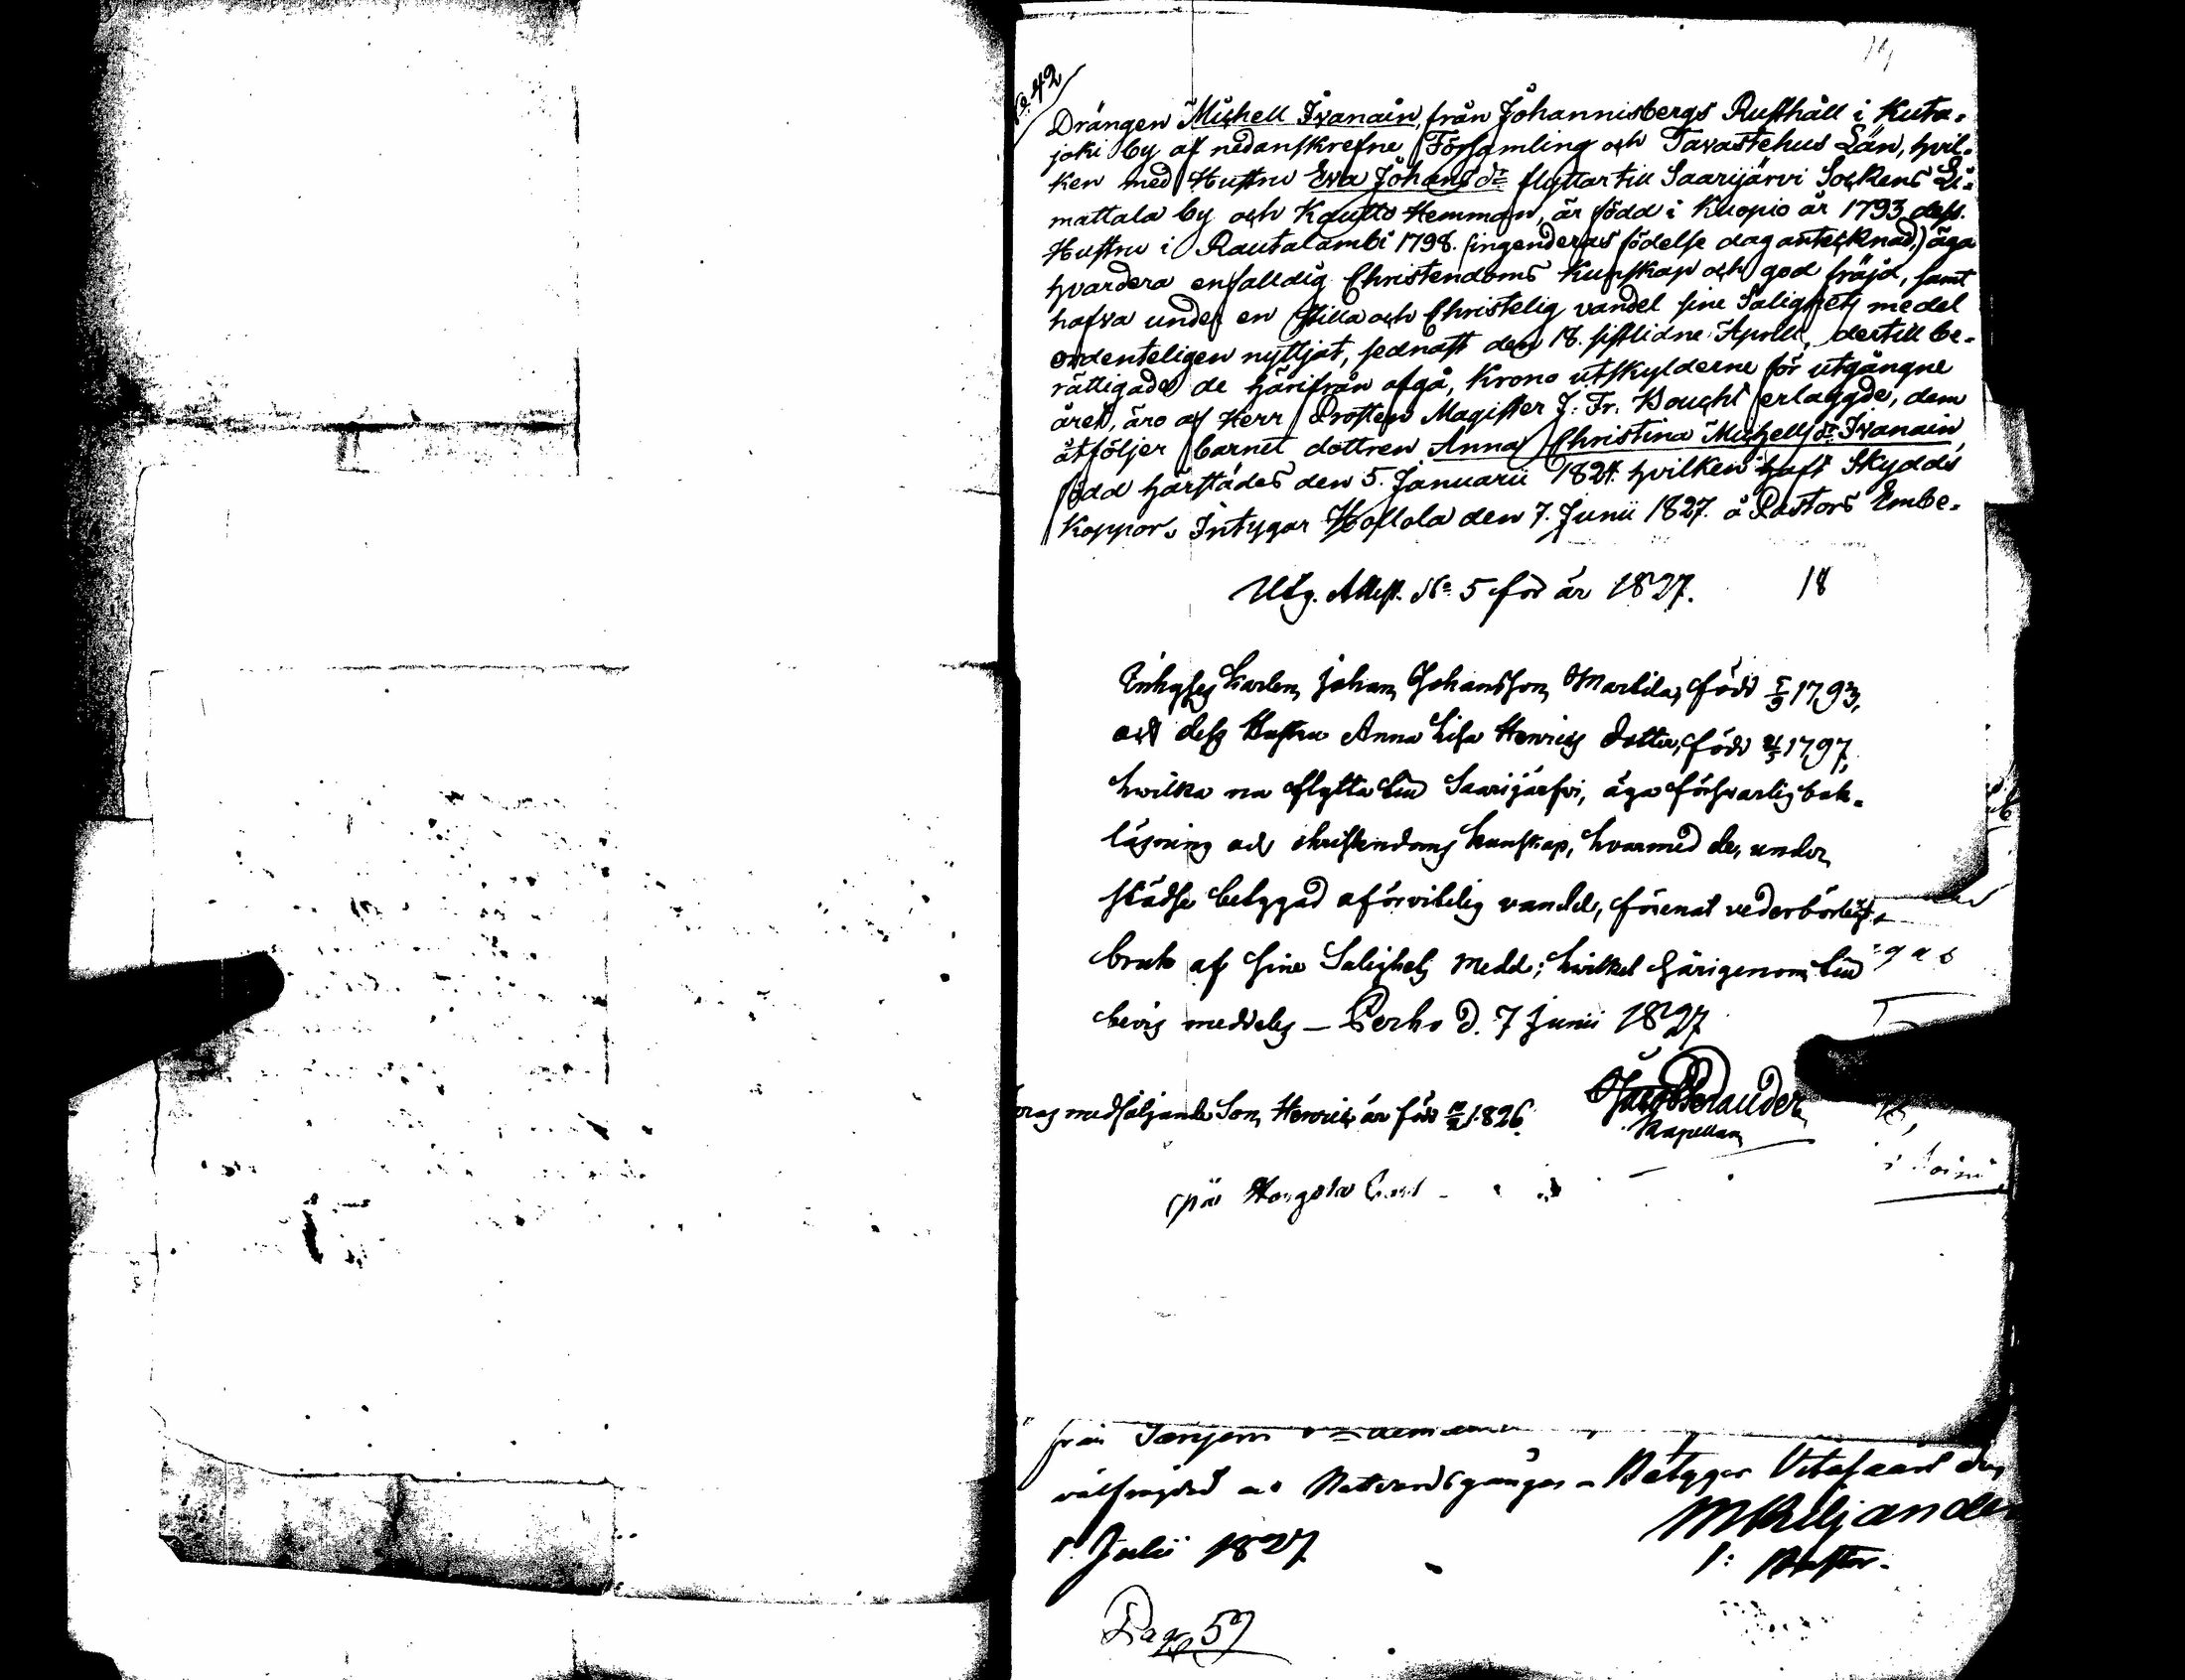 No. 42
Drängen Michell Ivanain från Johannisbergs Rusthåll i Kuta-
joki by af nedanskrefne Församling och Tavastehus Län, hvil-
ken med Hustru Eva Johansdr flyttar till Saarijärvi Sockens Li-
mattala by och Kautto Hemman, är född i Kuopio år 1793 dess
Hustru i Rautalambi 1798. (ingenderas födelse dag antecknad,) äga
hvardera enfalldig Christendoms Kunskap och god fräjd, samt
hafva under en stilla och Christelig vandel sine Salighets medel
ordenteligen nyttjat, sednast den 18. sistlidne Aprill, dertill be-
rättigade de härifrån afgå, Krono utskylderne för utgångne
året, äro af Herr Prosten Magister J. Fr. Boucht erlaggde, dem
åtföljer barnet dottren Anna Christina Michellsdr Ivanain,
född härstädes den 5. Januarii 1824. hvilken haft Skydds
Koppor. Intygar Hollola den 7. Junii 1827. å Pastors Embe-
Utg. Attest. No 5 för år 1827. 18
Inhyses karlen Johan Johansson Marlila, född 1793,
och dess Hustru Anna Lisa Henrics dotter, född 1797,
hvilka nu flytta till Saarijärfvi, äga försvarlig bok-
läsning och christendoms kunskap, hvarmed de, under
städse betygad oförvitelig vandel, förenat vederbörligt
bruk af sine Salighets medel; hvilket härigenom till
bevis meddeles – Perho d. 7 Junii 1827
Jacob Perander
Kapellan
medföljande Son Henric är född 1826.
på Hongola
från
Nattvardsgången Betygar Vitasaari den
1. Julii 1827. M Kiljander
Pastor.
Pag 59